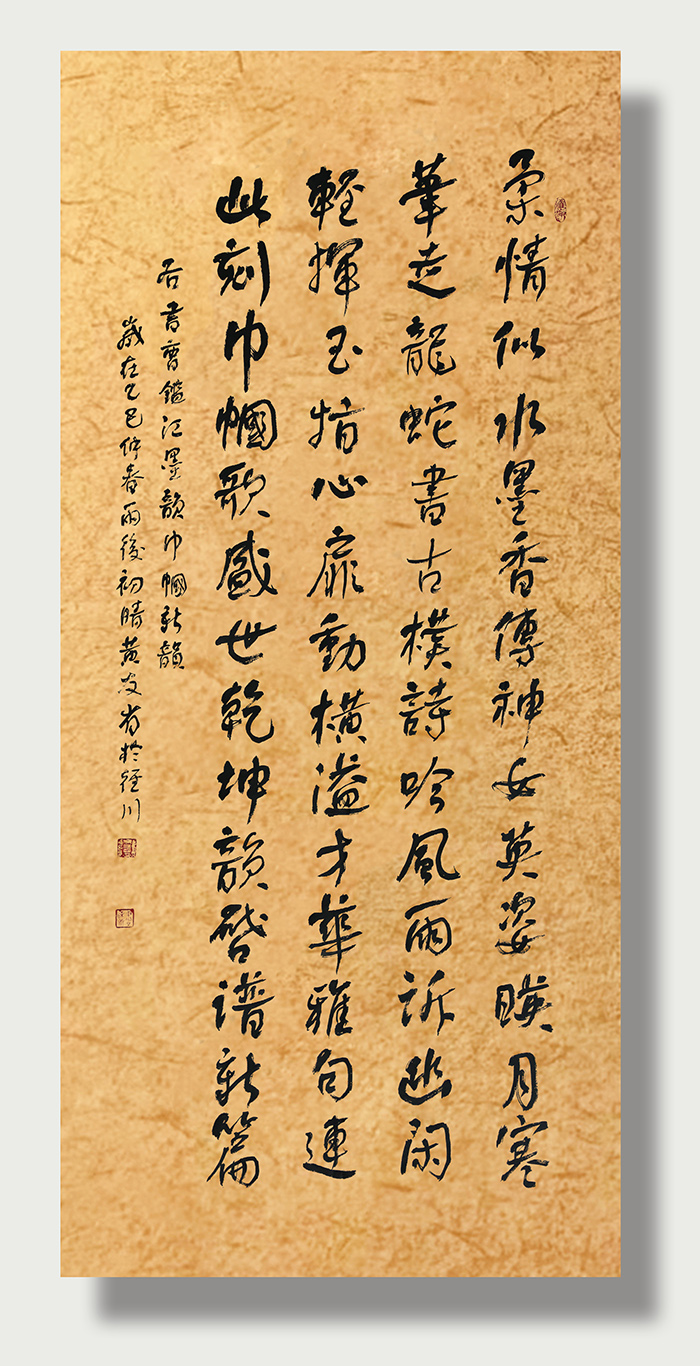 柔情似水墨香傳神女英姿映月寒
筆走龍蛇書古樸詩吟風雨訴幽閑
輕揮玉指心扉動橫溢才華雅句連
此刻巾幗歌盛世乾坤韻啓譜新篇
右書曹鑑江墨韻巾幗新韻
歲在乙巳仲春雨後初晴黃友於徑川